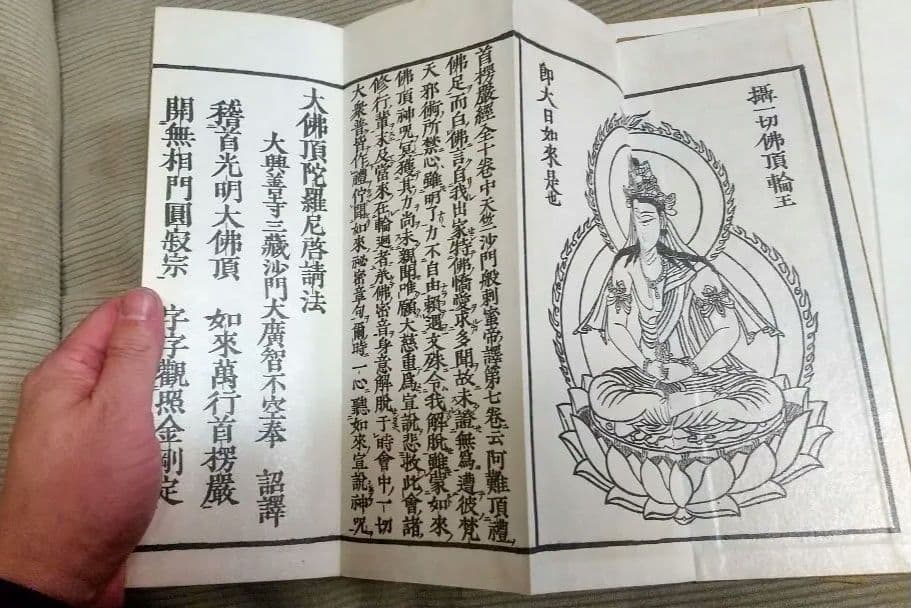 攝一切佛頂輪王
即大日如來是也
首楞嚴經全十卷中天竺沙門般剌蜜帝譯第七卷云阿難頂禮
佛足而白佛言自我出家特佛憍愛求多聞故未證無爲遭彼梵
天邪術所禁心雖明了力不自由頼遇文殊令我解脫雖蒙如來
佛頂神呪冥獲其力尚未親聞唯願大慈重爲宣説悲救此會諸
修行輩末及當來在輪迴者承佛密音身意解脫于時會中一切
大衆普皆作禮佇聞如來祕密章句爾時一心聽如來宣說神呪
大佛頂陀羅尼啓請法
大興善寺三藏沙門大廣智不空奉 詔譯
稽首光明大佛頂 如來萬行首楞嚴
開無相門圓寂宗 字字觀照金剛定